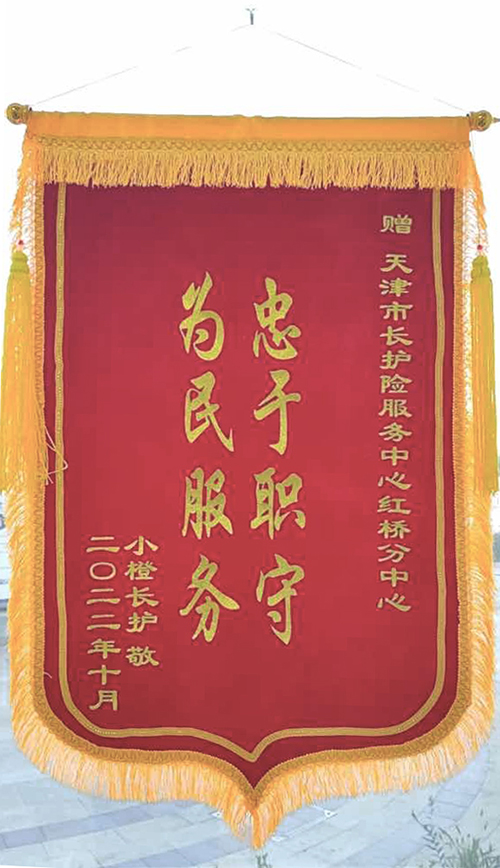 赠 天津市长护险服务中心红桥分中心
忠于职守
为民服务
小橙长护 敬
二〇二二年十月